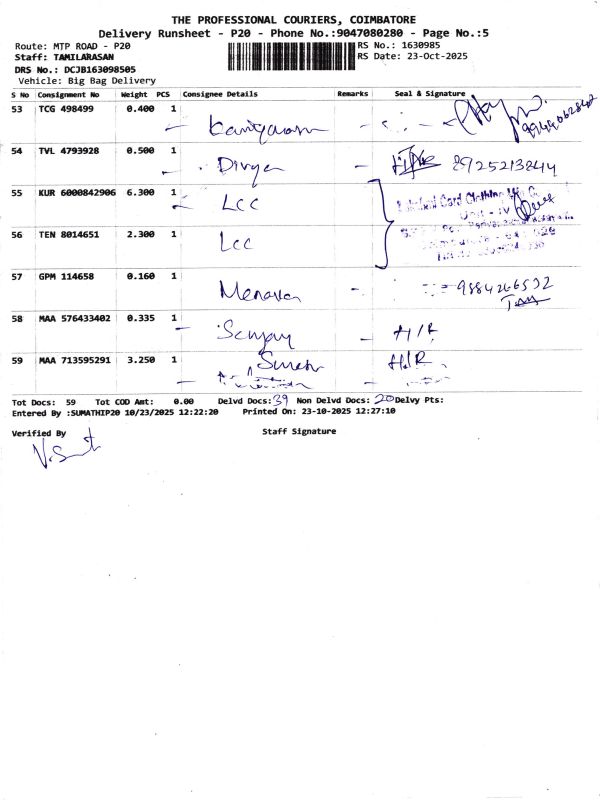 THE PROFESSIONAL COURIERS, COIMBATORE
Delivery Runsheet - P20 - Phone No.:9047080280 - Page No.:5
Route: MTP ROAD - P20
RS No.: 1630985
Staff: TAMILARASAN
RS Date: 23-Oct-2025
DRS No.: DCJB163098505
Vehicle: Big Bag Delivery
S No Consignment No Weight PCS Consignee Details Remarks Seal & Signature
53 TCG 498499 0.400 1
54 TVL 4793928 0.500 1 Divya 8925213844
55 KUR 6000842906 6.300 1 LCC
56 TEN 8014651 2.300 1 LCC
57 GPM 114658 0.160 1 9884266532
58 MAA 576433402 0.335 1 Sanjay H/R
59 MAA 713595291 3.250 1 H/R
Tot Docs: 59 Tot COD Amt: 0.00 Delvd Docs:39 Non Delvd Docs: 20 Delvy Pts:
Entered By :SUMATHIP20 10/23/2025 12:22:20 Printed On: 23-10-2025 12:27:10
Verified By Staff Signature